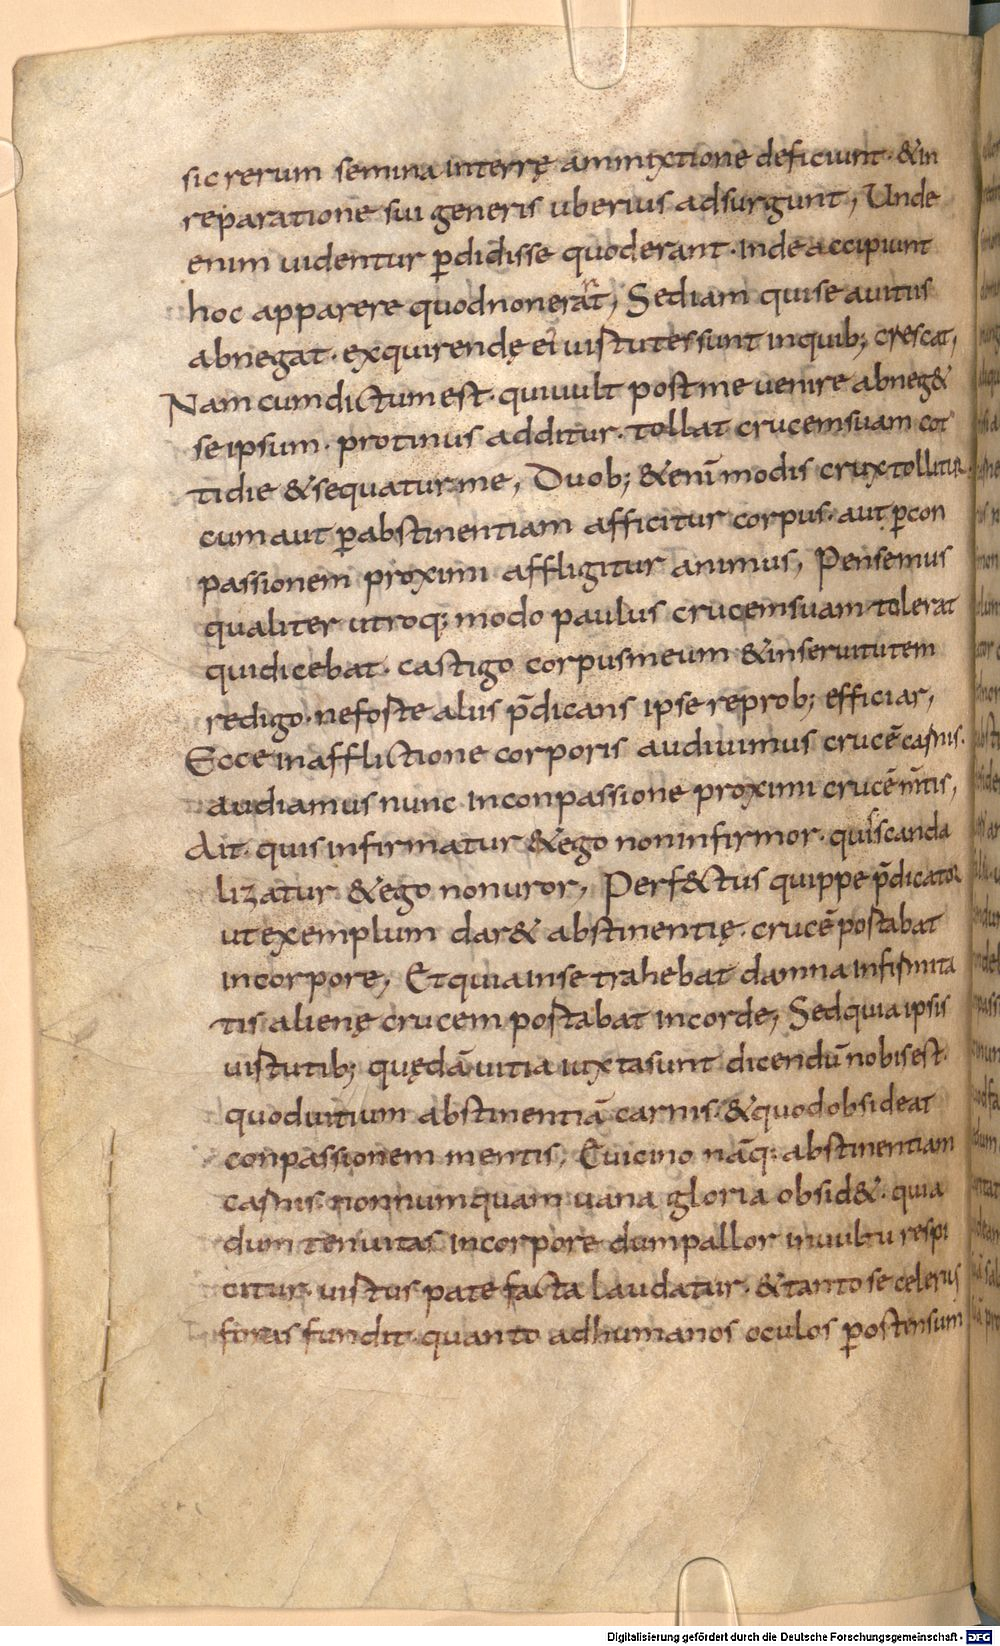 sic rerum semina in terrę ammixtione deficiunt · & in
reparatione sui generis uberius adsurgunt, Unde
enim uidentur p̄didisse quod erant · inde accipiunt
hoc apparere quod non erāt, Sed iam qui se a uitus
abnegat · exquirendę ei uirtutes sunt in quib; crescat,
Nam cum dictum est · qui uult post me uenire abneg&
se ipsum · protinus additur · tollat crucem suam cot
tidie & sequatur me, Duob; & enī modis crux tollitur
cum aut p̄ abstinentiam afficitur corpus · aut p̄ con
passionem proximi affligitur animus, Pensemus
qualiter utroq; modo paulus crucem suam tolerat
qui dicebat · castigo corpus meum & in seruitutem
redigo · ne forte aliis p̄dicans ipse reprob; efficiar,
Ecce in afflictione corporis audiuimus crucē carnis ·
audiamus nunc in conpassione proximi crucē m̄tis,
Ait · quis infirmatur & ego non infirmor · quis scanda
lizatur & ego non uror, Perf&tus quippe p̄dicator
ut exemplum dar& abstinentię · crucē portabat
in corpore, Et quia in se trahebat damna infirmita
tis alienę crucem portabat in corde, Sed quia ipsis
uirtutib; quędā uitia iuxta sunt dicendū nobis est ·
quod uitium abstinentiā carnis · & quod obsideat
conpassionem mentis, E uicino nāq; abstinentiam
carnis nonnumquam uana gloria obsid& · quia
dum tenuitas in corpore dum pallor in uultu respi
citur · uirtus patefacta laudatur · & tanto se celerius
foras fundit · quanto ad humanos oculos p̄ ostensum
Digitalisierung gefördert durch die Deutsche Forschungsgemeinschaft - DFG